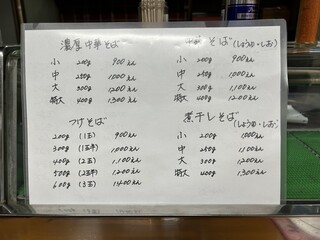 濃厚中華そば
小 200g 900えん
中 250g 1000えん
大 300g 1200えん
特大 400g 1300えん
中華そば(しょうゆ・しお)
小 200g 900えん
中 250g 1000えん
大 300g 1100えん
特大 400g 1200えん
つけそば
200g (1玉) 900えん
300g (1玉半) 1000えん
400g (2玉) 1,100えん
500g (2玉半) 1200えん
600g (3玉) 1400えん
煮干しそば(しょうゆ・しお)
小 200g 1000えん
中 250g 1,100えん
大 300g 1200えん
特大 400g 1300えん